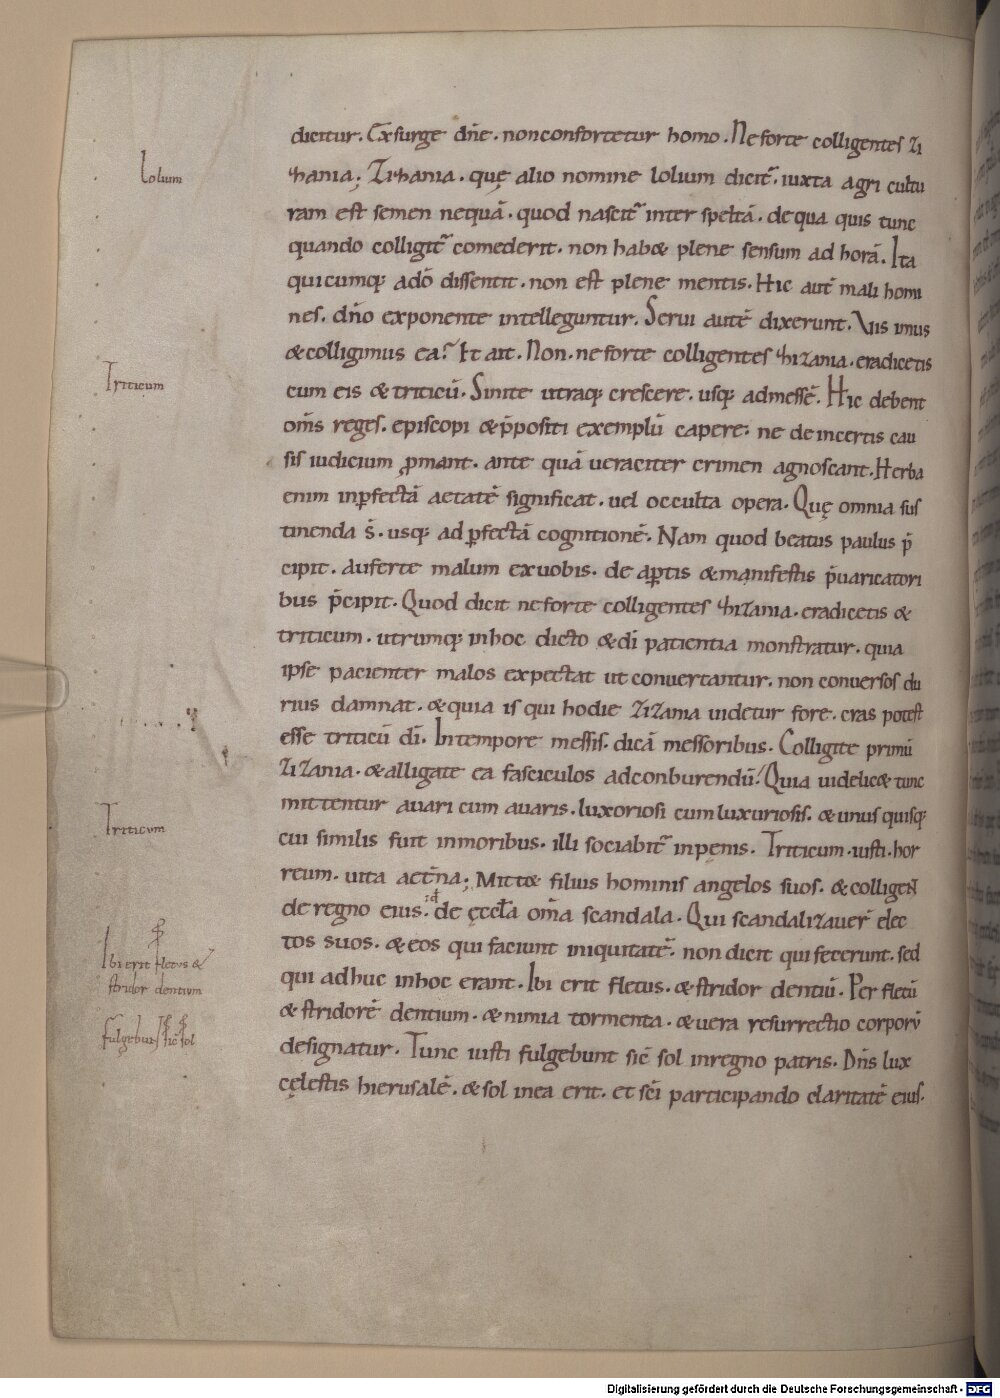 dicitur. Exsurge dñe. nonconfortetur homo. Neforte colligentes zi
Lolium
zhania; Zizhania. quę alio nomine lolium dicit̄. iuxta agri cultu
ram est semen nequā. quod nascit̄ inter speltā. dequa quis tunc
quando colligit̄ comederit. non hab& plene sensum ad horā. Ita
quicumq; adō dissentit. non est plene mentis. Hic aut̄ mali homi
nes. dño exponente intelleguntur. Serui autē dixerunt. Vis imus
&colligimus ea? Et ait. Non. neforte colligentes zhizania. eradicetis
Triticum
cum eis & triticū. Sinite utraq; crescere. usq; admessē. Hic debent
om̄s reges. episcopi &p̄positi exemplū capere. ne deincertis cau
sis iudicium ꝓmant. ante quā ueraciter crimen agnoscant. Herba
enim inꝑfectā aetatē significat. uel occulta opera. Quę omnia sus
tinenda s̄. usq; ad ꝑfectā cognitionē. Nam quod beatus paulus p̄
cipit. auferte malum exuobis. de aꝑtis &manifestis p̄uaricatori
bus p̄cipit. Quod dicit neforte colligentes zhizania. eradicetis &
triticum. utrumq; inhoc dicto &dī patientia monstratur. quia
ipse pacienter malos expectat ut conuertantur. non conuersos du
rius damnat. &quia is qui hodie zizania uidetur fore. cras potest
esse triticū dī. Intempore messis. dicā messoribus. Colligite primū
zizania. &alligate ea fasciculos adconburendū. Quia uidelic& tunc
Triticum
mittentur auari cum auaris. luxoriosi cumluxuriosis. &unus quisq;
cui similis fuit inmoribus. illi sociabit̄ inpęnis. Triticum. iusti. hor
reum. uita aet̄na; Mitt& filius hominis angelos suos. &colligeN
deregno eius. id̄ de ęccl̄a om̄a scandala. Qui scandalizauer̄ elec
tos suos. &eos qui faciunt iniquitatē. non dicit qui fecerunt. sed
Ibi erit fletus &
stridor dentium
qui adhuc inhoc erant. Ibi erit fletus. &stridor dentiū. Per fletū
fulgebunt sic̄ sol
&stridorē dentium. &nimia tormenta. &uera resurrectio corporū
designatur. Tunc iusti fulgebunt sic̄ sol inregno patris. Dñs lux
cęlestis hierusalē. &sol inea erit. et sc̄i participando claritatē eius.
Digitalisierung gefördert durch die Deutsche Forschungsgemeinschaft - DFG